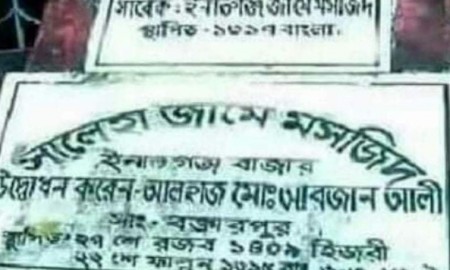 সাবেক: ইনাতগঞ্জ জামে মসজিদ
স্থাপিত - ১৩১৭ বাংলা.
সালেহা জামে মসজিদ
ইনাতগঞ্জ বাজার
উদ্বোধন করেন-আলহাজ মোঃ আবজান আলী
সাং- বক্তারপুর
স্থাপিত ২৭ শে রজব ১৪০৯ হিজরী
২২ শে ফাল্গুন ১৩৯৫